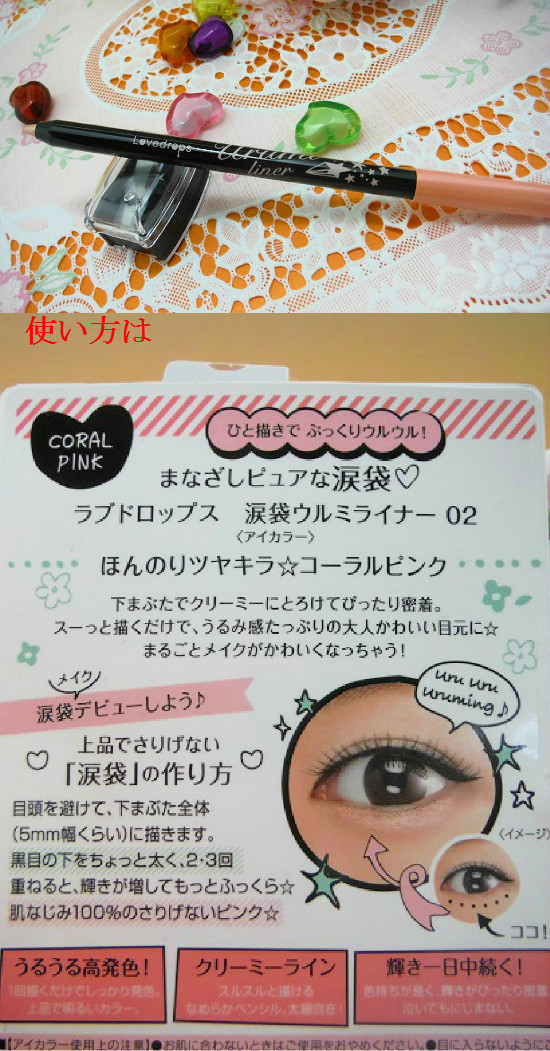 Lovedrops
Urumi
liner
使い方は
CORAL
PINK
ひと描きで ぷっくりウルウル!
まなざしピュアな涙袋♡
ラブドロップス 涙袋ウルミライナー 02
〈アイカラー〉
ほんのりツヤキラ☆コーラルピンク
下まぶたでクリーミーにとろけてぴったり密着。
スーっと描くだけで、うるみ感たっぷりの大人かわいい目元に☆
まるごとメイクがかわいくなっちゃう!
uru uru
uruming♪
メイク
涙袋デビューしよう♪
上品でさりげない
「涙袋」の作り方
目頭を避けて、下まぶた全体
(5mm幅くらい)に描きます。
黒目の下をちょっと太く、2・3回
重ねると、輝きが増してもっとふっくら☆
肌なじみ100%のさりげないピンク☆
〈イメージ〉
ココ!
うるうる高発色!
1回描くだけでしっかり発色。
上品で明るいカラー。
クリーミーライン
スルスルと描ける
なめらかペンシル。太細自在!
輝き一日中続く!
色持ちが良く、輝きがぴったり密着
泣いてもにじまない。
■【アイカラー使用上の注意】●お肌に合わないときはご使用をおやめください。●目に入らないように